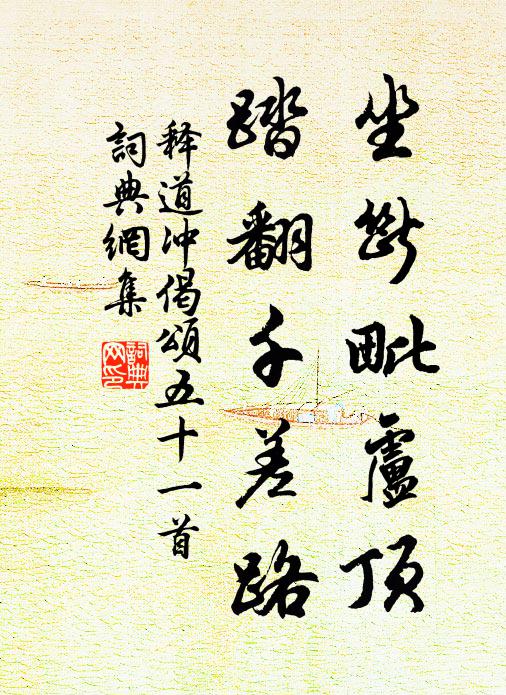 坐断毗盧頂
踏翻千差路
释道冲偈頌五十一首
詞典網集
詞典网印